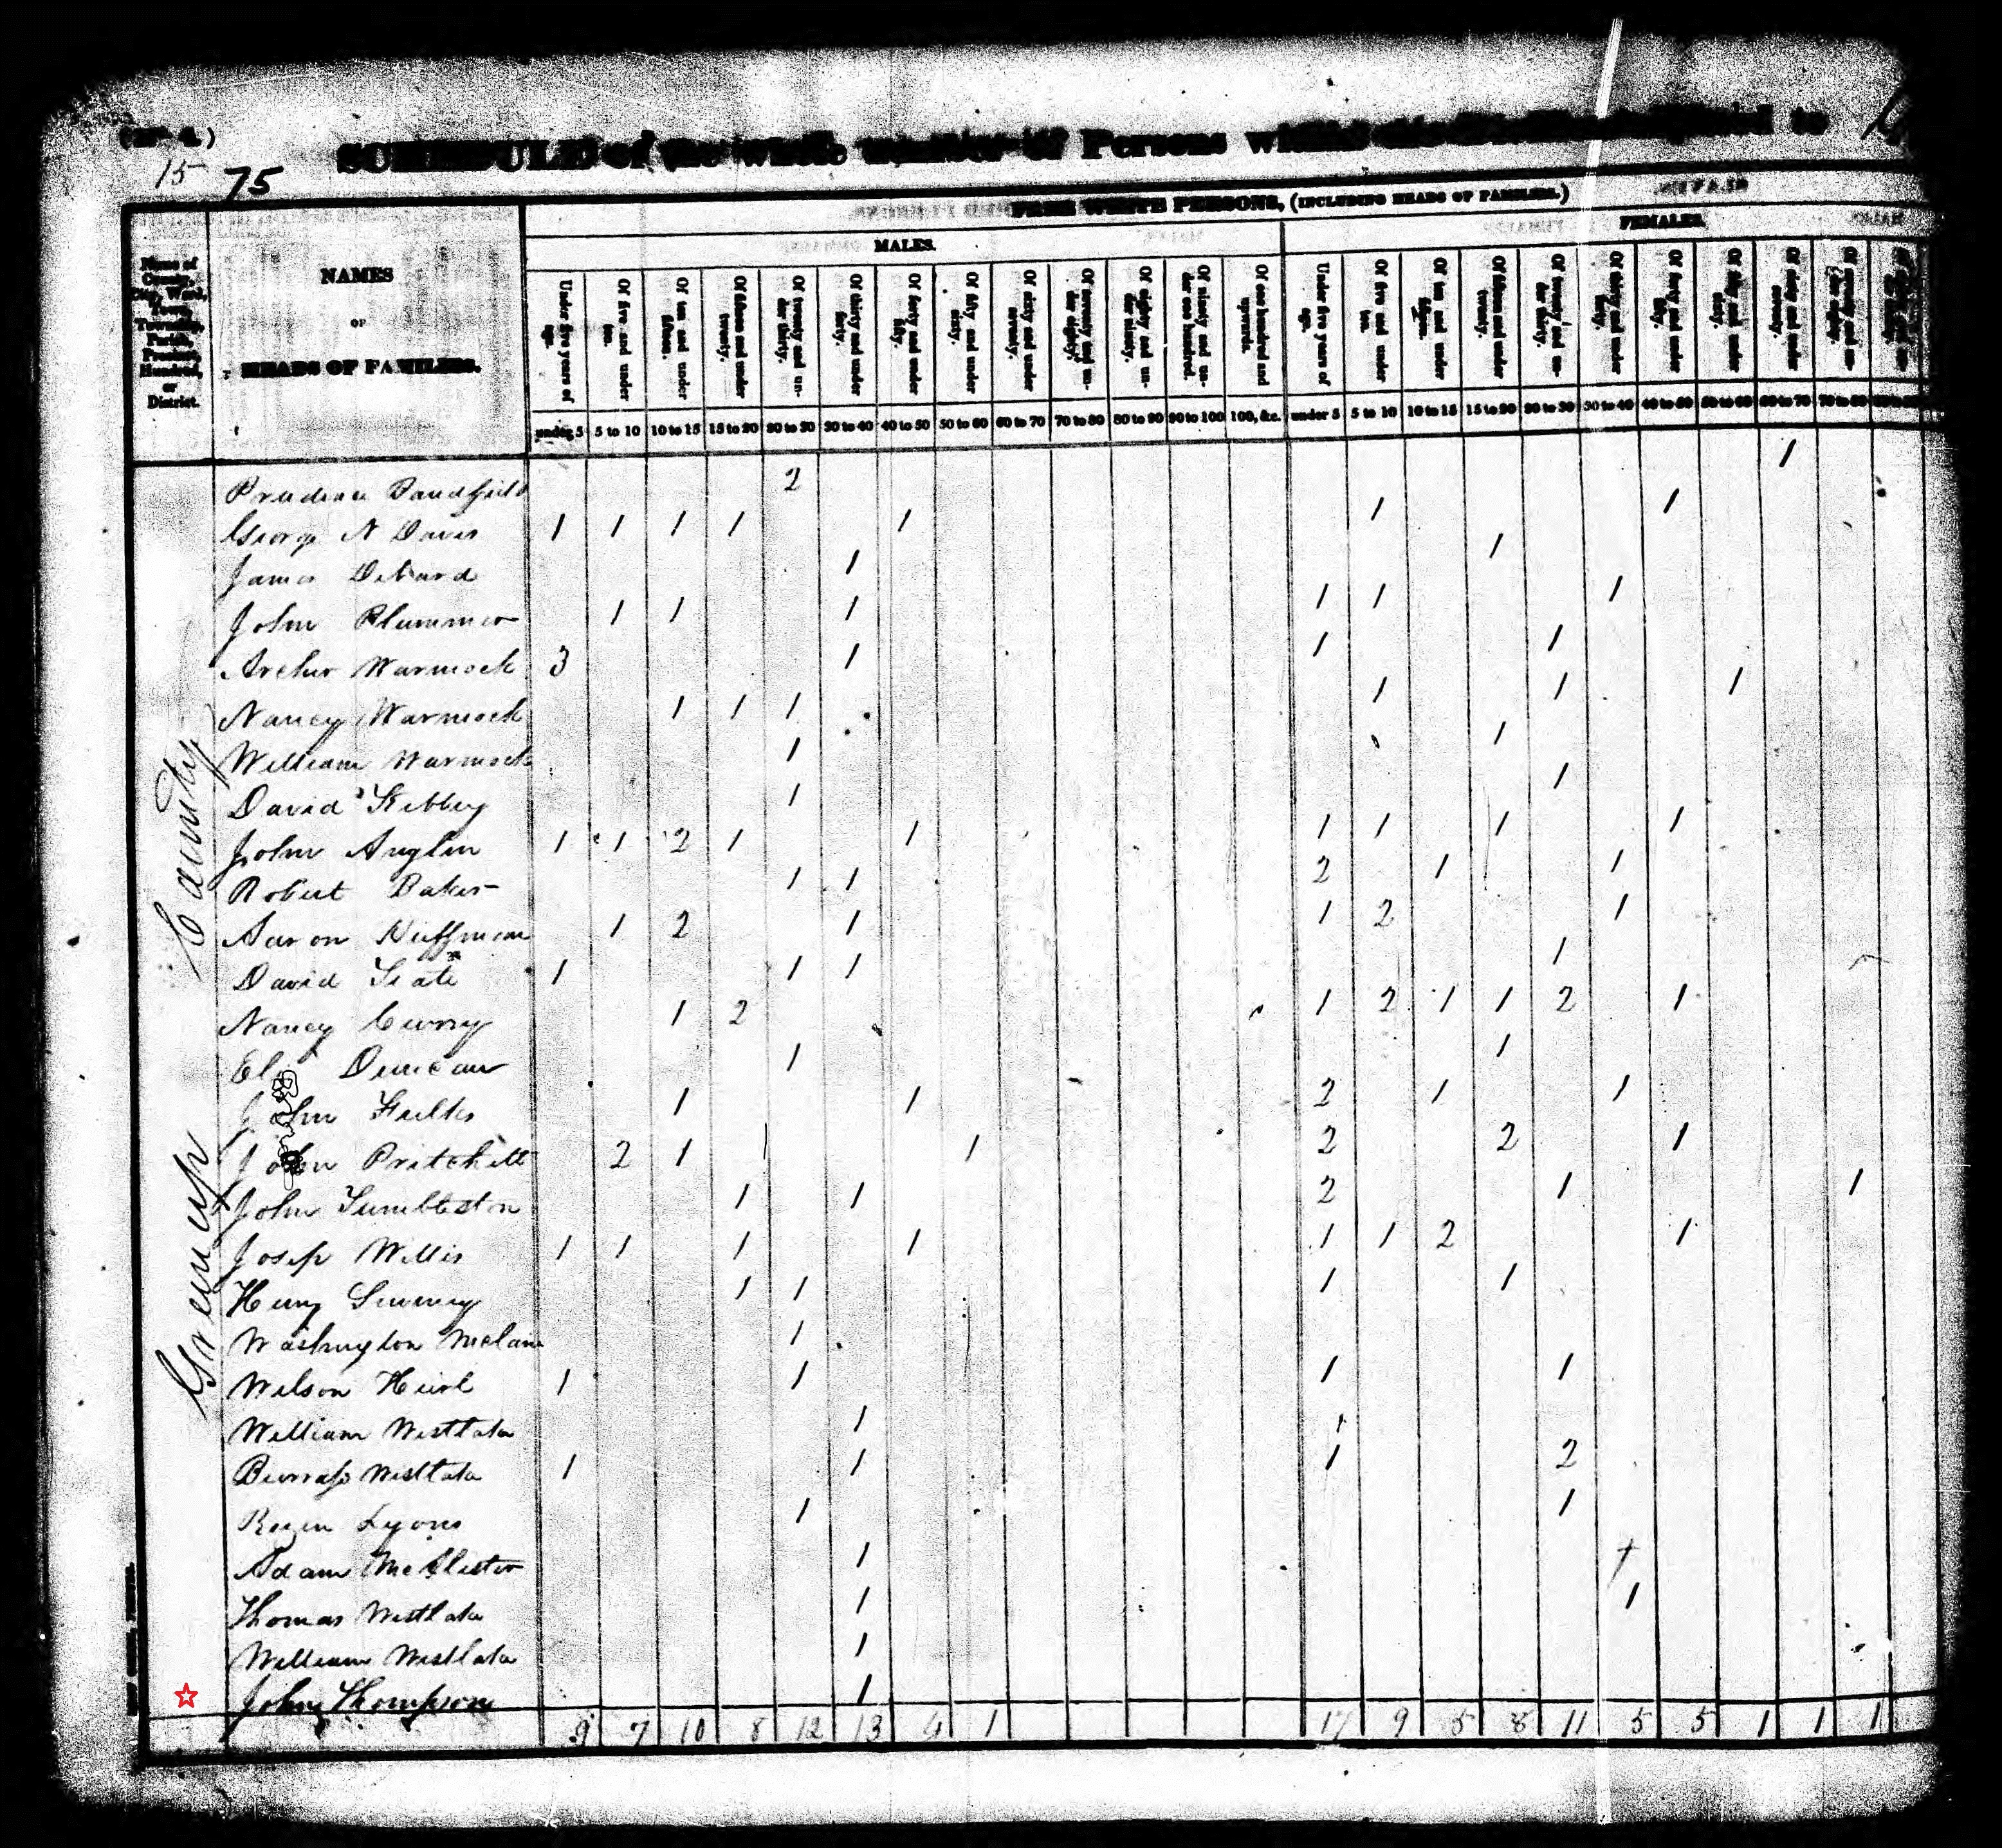 15 75
SCHEDULE of the whole number of Persons within
to
FREE WHITE PERSONS, (INCLUDING HEADS OF FAMILIES.)
MALES. FEMALES.
Name of County, City, Ward, Town, Township, Parish, Precinct, Hundred, or District.
NAMES
OF
HEADS OF FAMILIES.
Under five years of age. Of five and under ten. Of ten and under fifteen. Of fifteen and under twenty. Of twenty and under thirty. Of thirty and under forty. Of forty and under fifty. Of fifty and under sixty. Of sixty and under seventy. Of seventy and under eighty. Of eighty and under ninety. Of ninety and under one hundred. Of one hundred and upwards. Under five years of age. Of five and under ten. Of ten and under fifteen. Of fifteen and under twenty. Of twenty and under thirty. Of thirty and under forty. Of forty and under fifty. Of fifty and under sixty. Of sixty and under seventy. Of seventy and under eighty.
under 5 5 to 10 10 to 15 15 to 20 20 to 30 30 to 40 40 to 50 50 to 60 60 to 70 70 to 80 80 to 90 90 to 100 100, &c. under 5 5 to 10 10 to 15 15 to 20 20 to 30 30 to 40 40 to 50 50 to 60 60 to 70 70 to 80
Greenup County
2 1
George N Davis 1 1 1 1 1 1 1
James 1 1
John Plummer 1 1 1 1 1 1
Archer Warmock 3 1 1 1
Nancy Warmock 1 1 1 1 1 1
William Warmock 1 1
David Kibbey 1 1
John Anglin 1 1 2 1 1 1 1 1 1
Robert Baker 1 1 2 1 1
Aaron Huffman 1 2 1 1 2 1
David 1 1 1 1
Nancy Curry 1 2 1 2 1 1 2 1
Duncan 1 1
John Fults 1 1 2 1 1
John Pritchett 2 1 1 1 2 2 1
John Tumbleston 1 1 2 1 1
Josep Willis 1 1 1 1 1 1 2 1
Henry 1 1 1 1
Washington 1
Wilson 1 1 1 1
William Westlake 1 1
Westlake 1 1 1 2
Lyons 1 1
Adam McAlister 1 1
Thomas Westlake 1 1
William Westlake 1
John Thompson 1
9 7 10 8 12 13 4 1 17 9 5 8 11 5 5 1 1 1